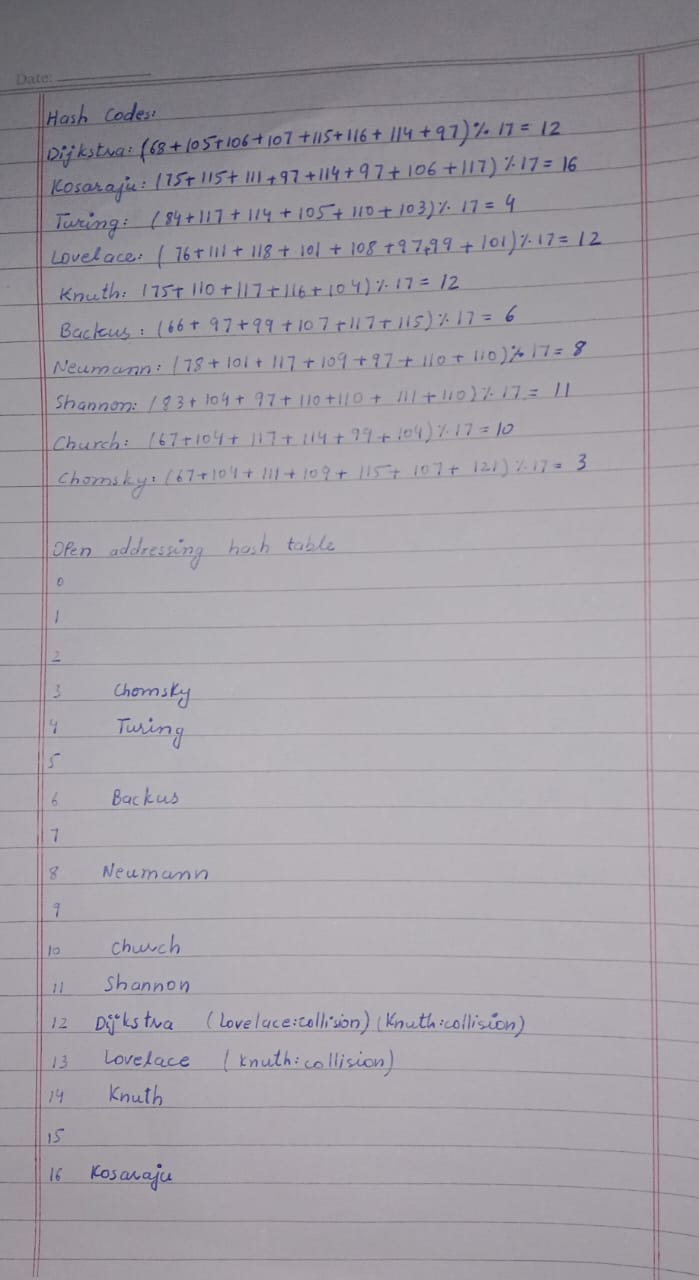 Date:
Hash Codes:
Dijkstra: (68+105+106+107+115+116+114+97)% 17 = 12
Kosaraju: (75+115+111+97+114+97+106+117)%17=16
Turing: (84+117+114+105+110+103)% 17=4
Lovelace: (76+111+118+101+108+97,99+101)%17=12
Knuth: (75+110+117+116+104)%17=12
Backus: (66+97+99+107+117+115)%17=6
Neumann: (78+101+117+109+97+110+110)%17=8
Shannon: (83+104+97+110+110+111+110)%17=11
Church: (67+104+117+114+99+104)%17=10
Chomsky: (67+104+111+109+115+107+121)%17=3
Open addressing hash table
0
1
2
3 Chomsky
4 Turing
5
6 Backus
7
8 Neumann
9
10 Church
11 Shannon
12 Dijkstra (Lovelace:collision) (Knuth:collision)
13 Lovelace (Knuth:collision)
14 Knuth
15
16 Kosaraju